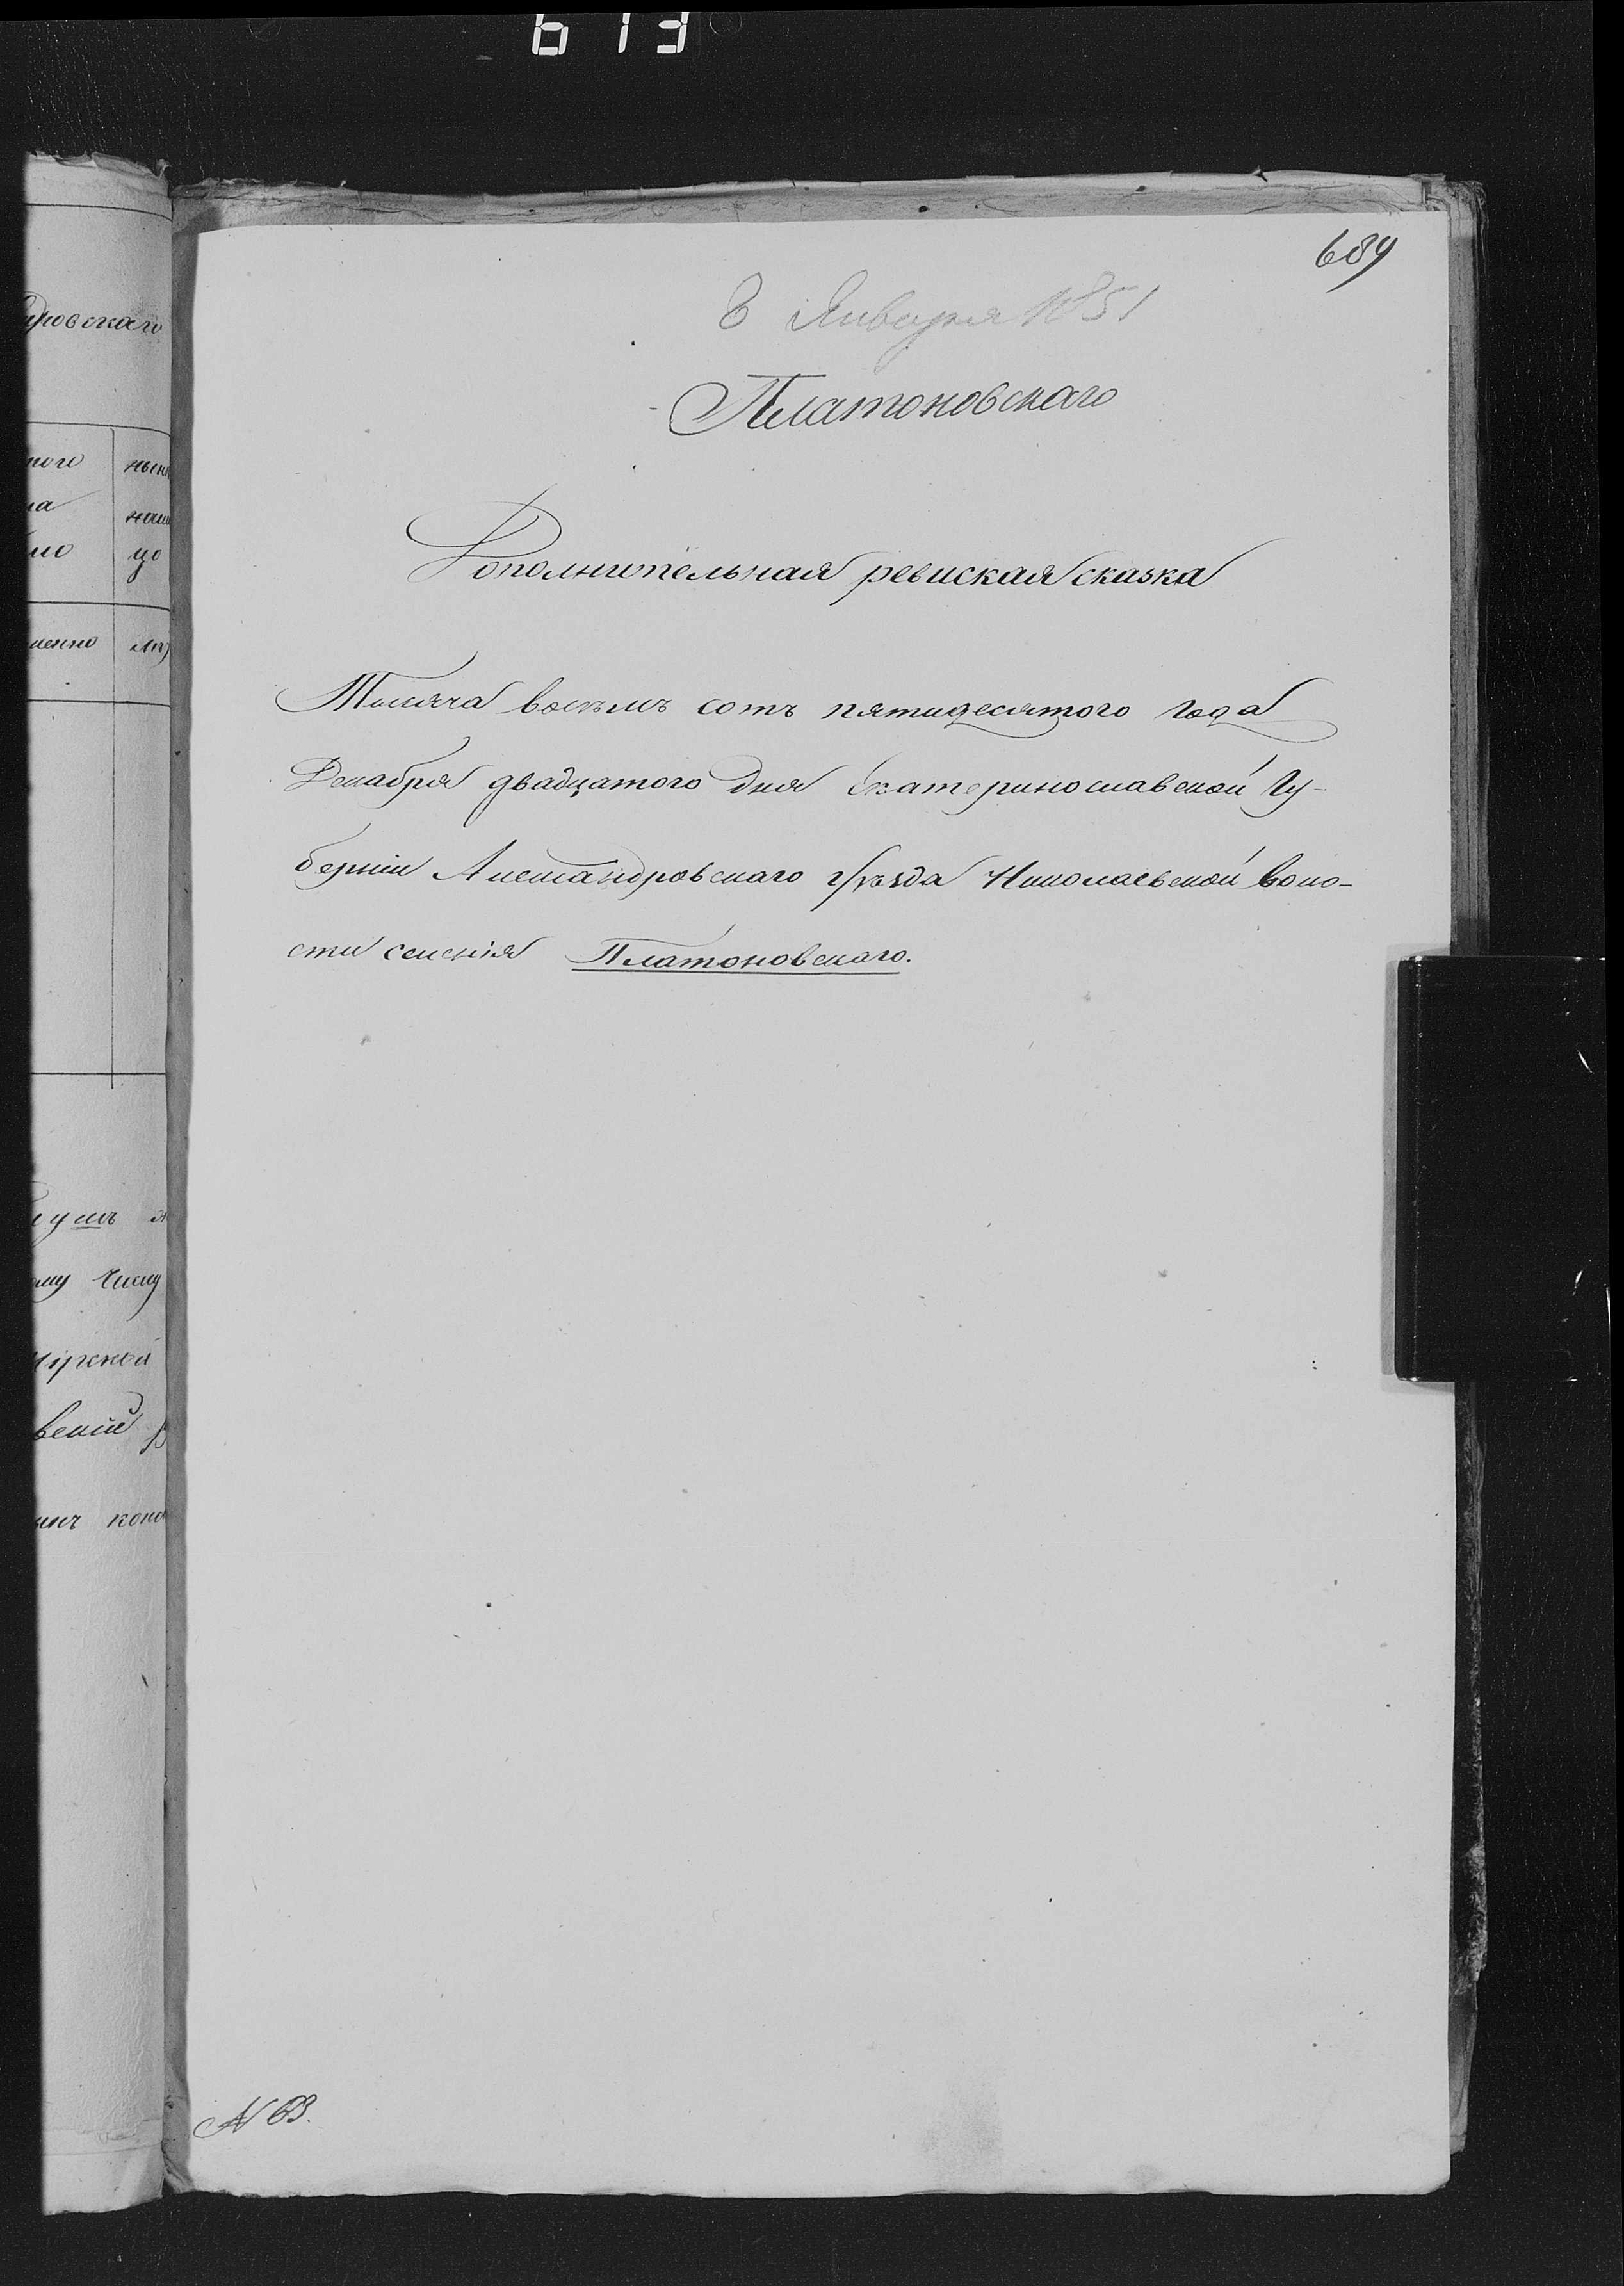 613
689
8 Января 1851
Платоновскаго
Дополнительная ревиская сказка
Тысяча восемь сотъ пятидесятого года
Декабря двадцатого дня Екатеринославской Гу-
берніи Александровскаго уѣзда Николаевской воло-
сти селенія Платоновскаго.
N 63.